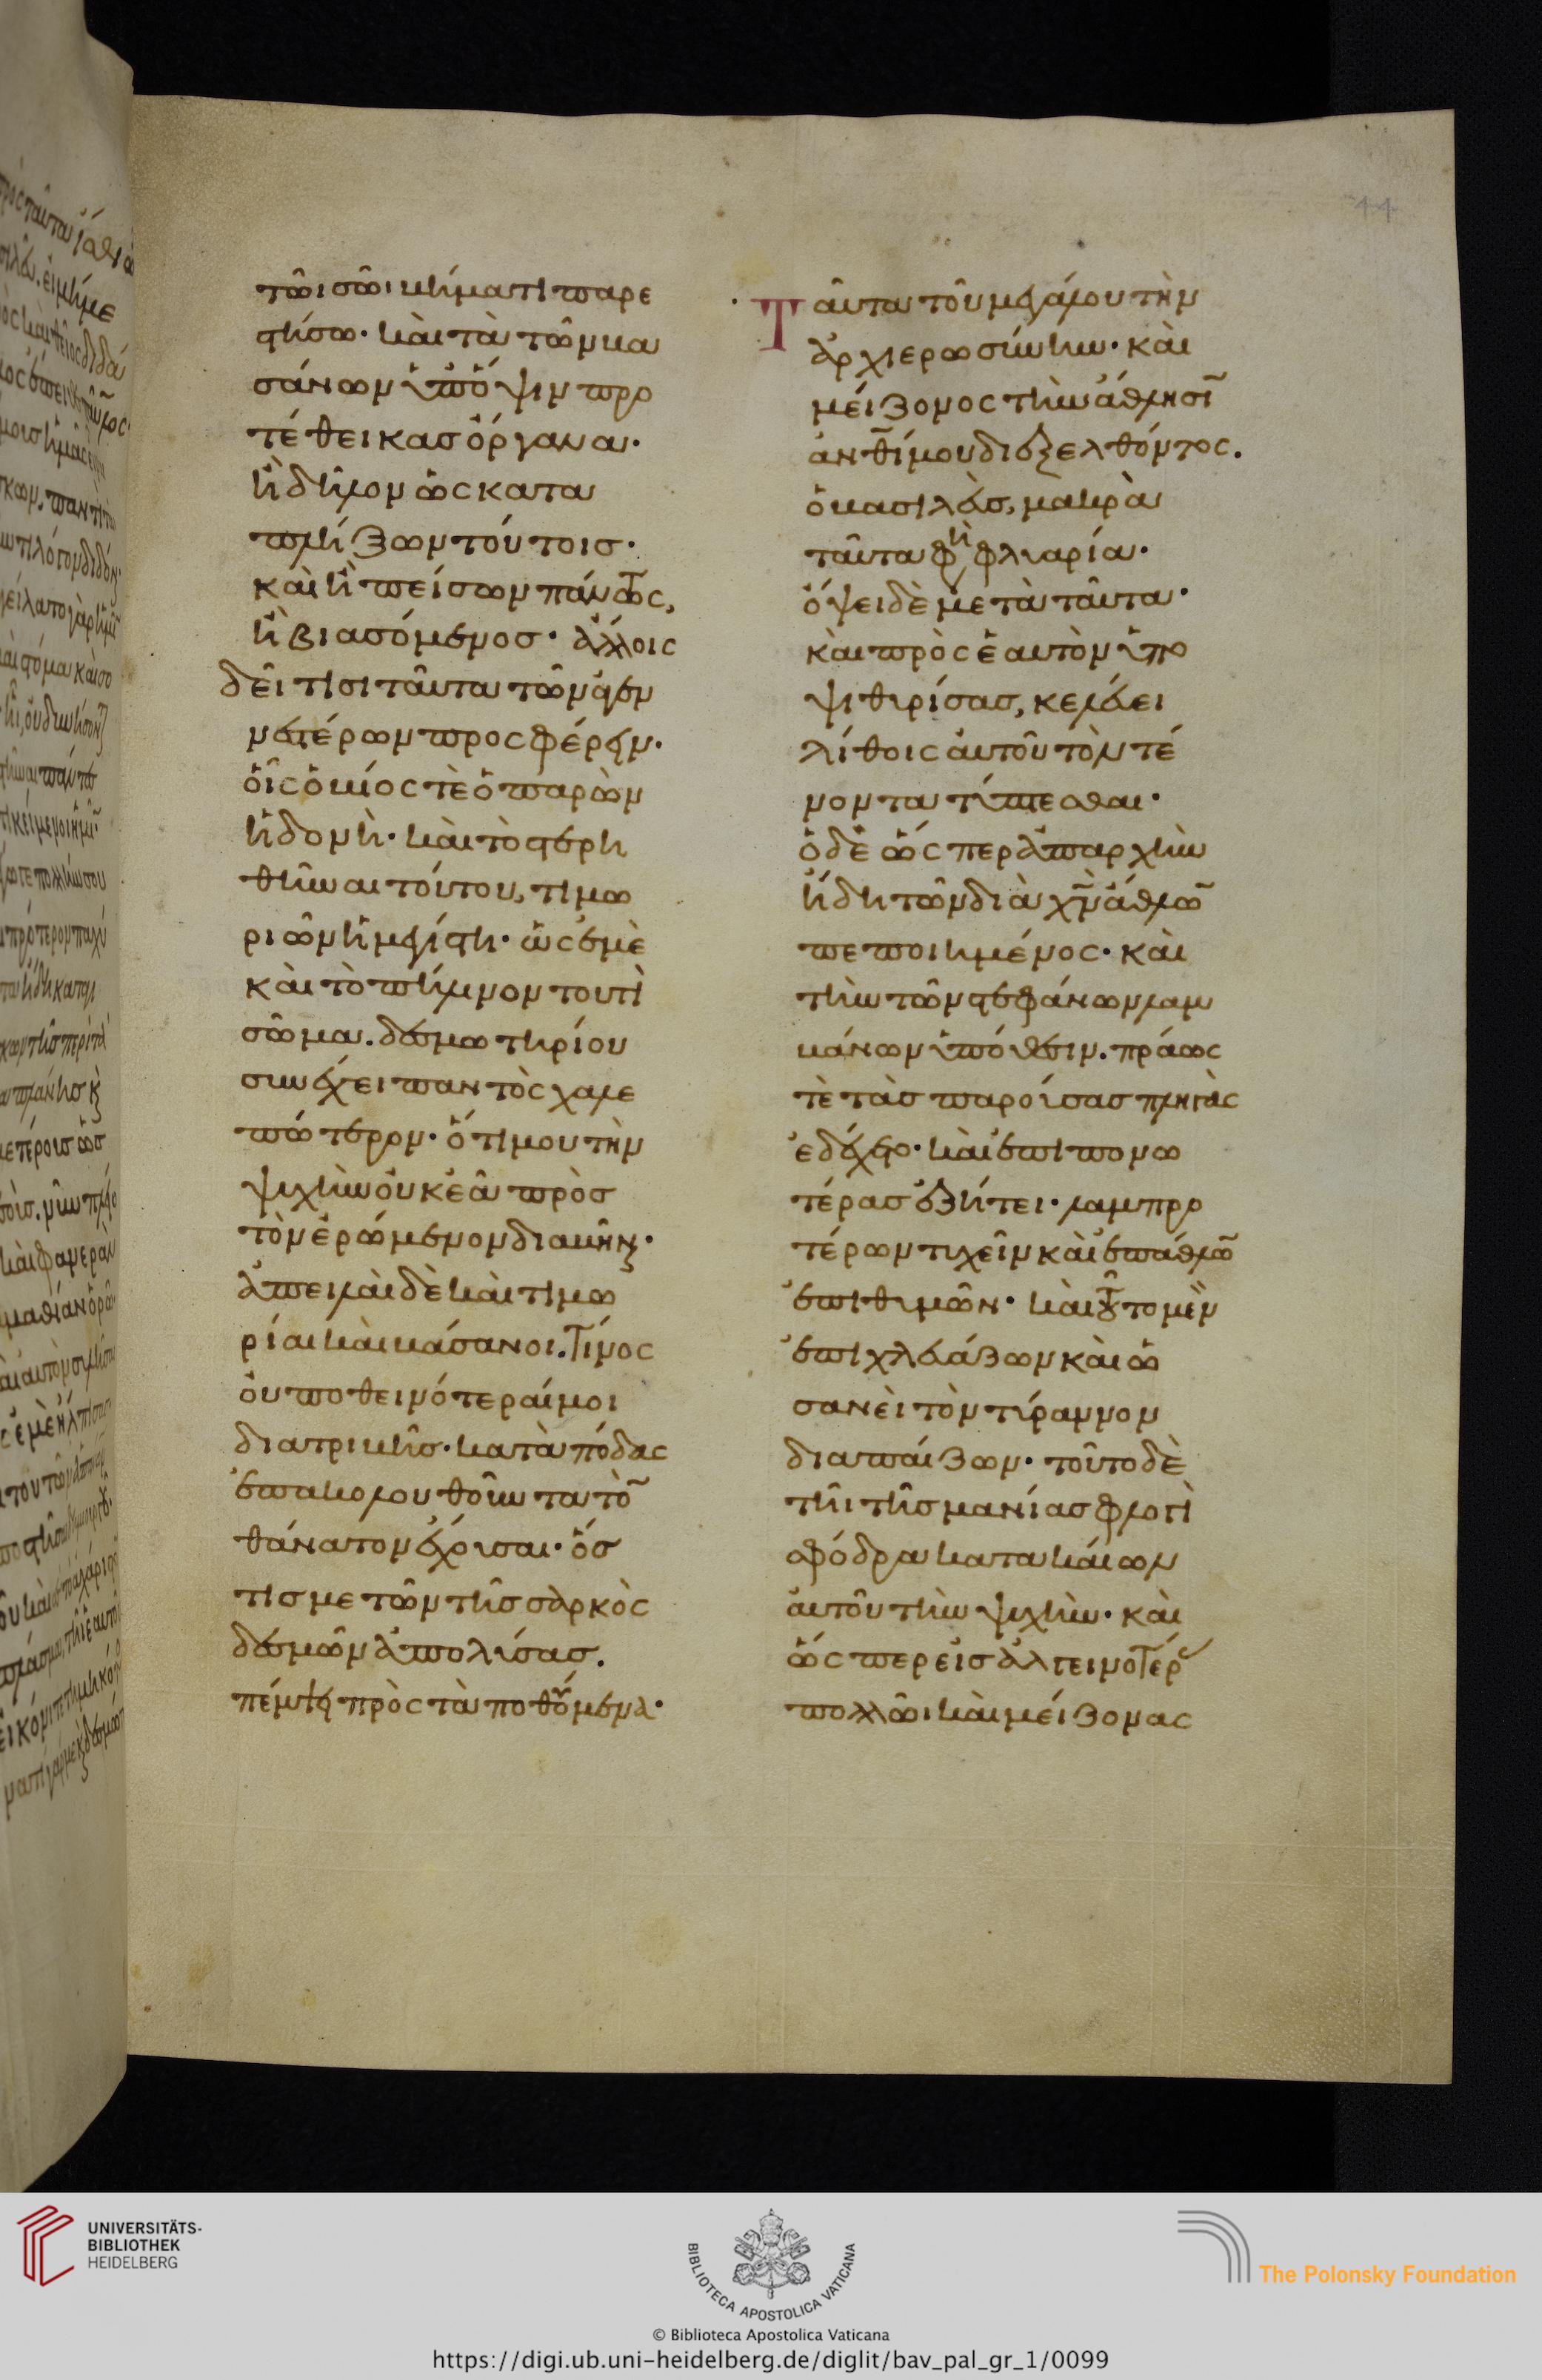 τῶι σῶι βήματι παρε
στήσω· καὶ τὰ τῶν βα
σάνων ὑπ' ὄψιν προ
τέθεικας ὄργανα·
ἢ δῆλον ὡς κατα
πλήξων τούτοις·
καὶ ἢ πείσων πάντως,
ἢ βιασόμενος· ἄλλοις
δεῖ τισι ταῦτα τῶν ἀγεν
νεστέρων προσφέρειν·
οἷς ὁ βίος τὲ ὁ παρὼν
ἡδονὴ· καὶ τὸ στερη
θῆναι τούτου, τιμω
ριῶν ἡ μεγίστη· ὡς ἐμὲ
καὶ τὸ πήλινον τουτὶ
σῶμα. δεσμωτηρίου
συνέχει παντὸς χαλε
πώτερον· ὅτι μου τὴν
ψυχὴν οὐκ ἐᾶ πρὸς
τὸν ἐρώμενον διαβῆναι·
ἀπειλαὶ δὲ καὶ τιμω
ρίαι καὶ βάσανοι. τίνος
οὐ ποθεινότεραί μοι
διατριβῆς· κατὰ πόδας
ἐπακολουθοῦντα τὸν
θάνατον ἔχουσαι· ὅς
τίς με τῶν τῆς σαρκὸς
δεσμῶν ἀπολύσας.
πέμπει πρὸς τὰ ποθούμενα·
Ταῦτα τοῦ μεγάλου τὴν
ἀρχιερωσύνην· καὶ
μείζονος τὴν ἄθλησιν
ἀνθίμου διεξελθόντος.
ὁ βασιλεὺς, μακρὰ
ταῦτα φησὶ φλυαρία·
ὄψει δὲ μετὰ ταῦτα·
καὶ πρὸς ἑαυτὸν ὑπο
ψιθυρίσας, κελεύει
λίθοις αὐτοῦ τὸν τέ
νοντα τύπτεσθαι·
ὁ δὲ ὥσπερ ἀπαρχὴν
ἤδη τῶν διὰ χν ἄθλων
πεποιημένος· καὶ
τὴν τῶν στεφάνων λαμ
βάνων ὑπόθεσιν. πράως
τὲ τὰς παρούσας πληγὰς
ἐδέχετο· καὶ ἐπιπονω
τέρας ἐζήτει· λαμπρο
τέρων τυχεῖν καὶ ἐπάθλων
ἐπιθυμῶν· καὶ τοῦτο μὲν
ἐπιχλευάζων καὶ ὡ
σανεὶ τὸν τύραννον
διαπαίζων· τοῦτο δὲ
τῆι τῆς μανίας φλογὶ
σφόδρα κατακαίων
αὐτοῦ τὴν ψυχὴν· καὶ
ὥσπερ εἰς ἀλγεινοτέρας
πολλῶι καὶ μείζονας
44
UNIVERSITÄTS-
BIBLIOTHEK
HEIDELBERG
BIBLIOTECA APOSTOLICA VATICANA
The Polonsky Foundation
© Biblioteca Apostolica Vaticana
https://digi.ub.uni-heidelberg.de/diglit/bav_pal_gr_1/0099